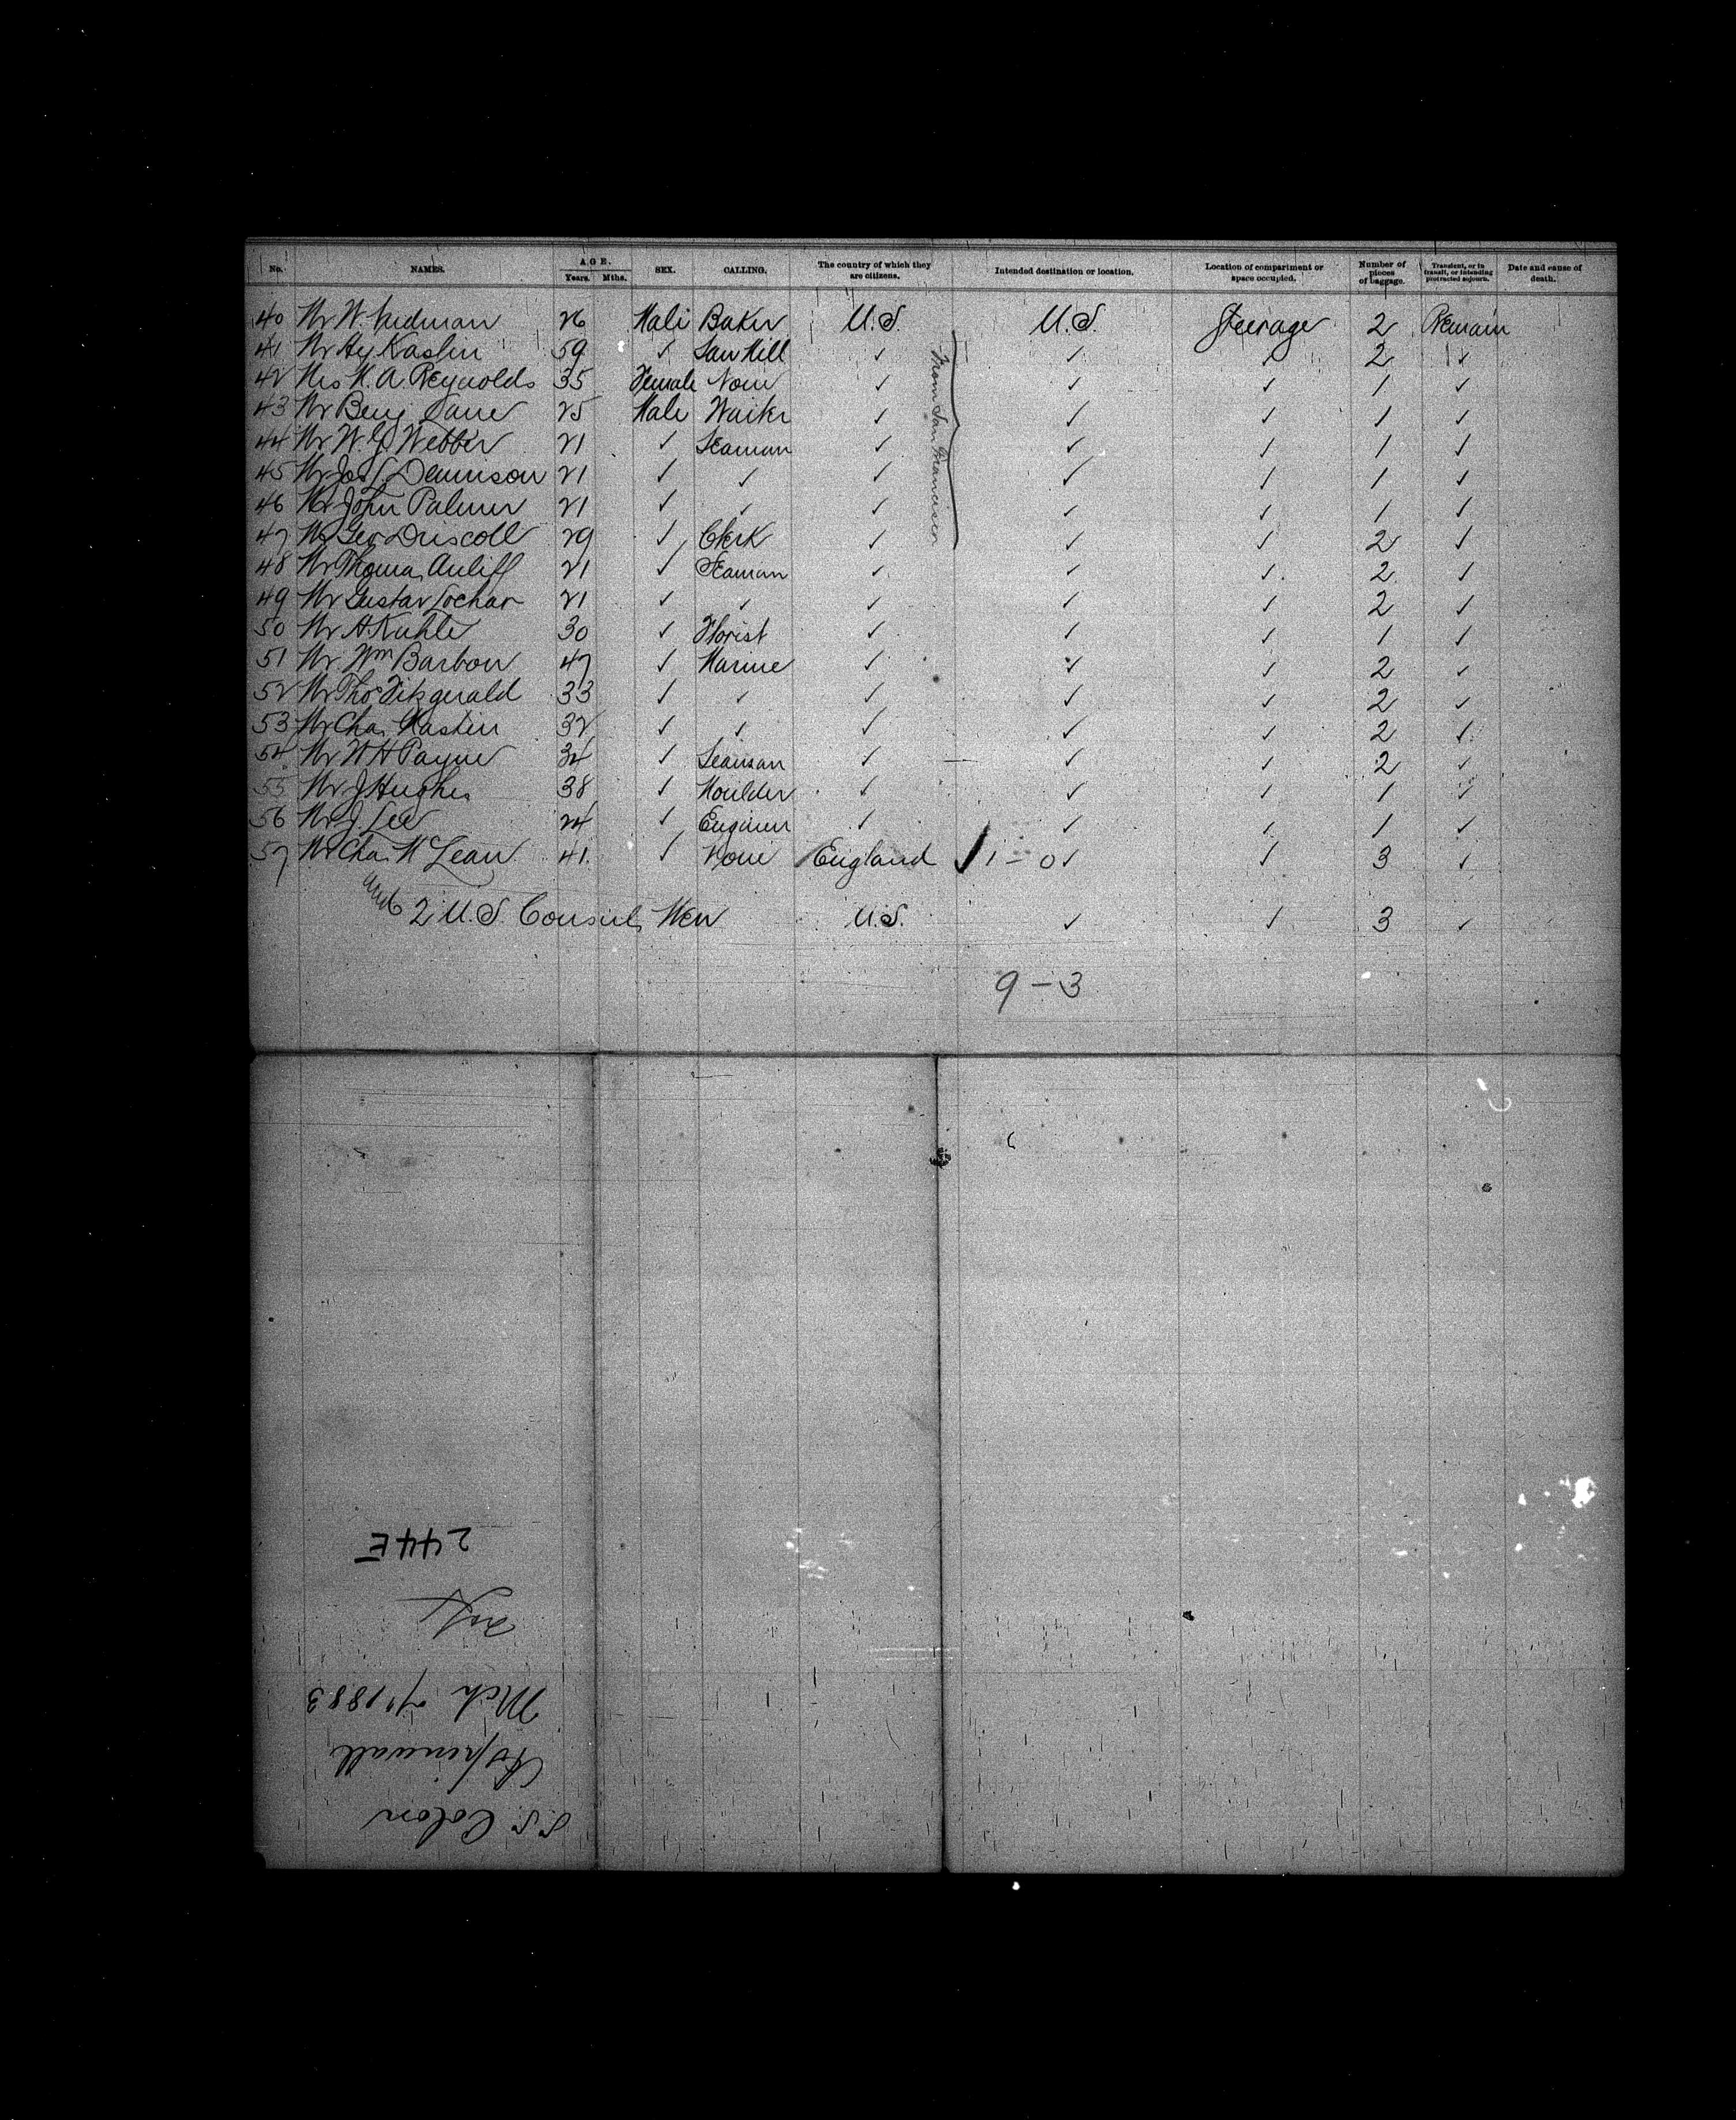 No. NAMES. AGE. Years. Mths. SEX. CALLING. The country of which they are citizens. Intended destination or location. Location of compartment or space occupied. Number of pieces of baggage. Transient, or in transit, or intending protracted sojourn. Date and cause of death.
40 Mr W. 26 Male Baker U.S. U.S. Steerage 2 Remain
41 Mr Hy Kaslin 59 ✓ Saw Mill ✓ ✓ ✓ 2 ✓
42 Mrs M. A. Reynolds 35 Female None ✓ ✓ ✓ 1 ✓
43 Mr Benj 25 Male Waiter ✓ ✓ ✓ 1 ✓
44 Mr W. G. Webber 21 ✓ Seaman ✓ ✓ ✓ 1 ✓
45 Mr Jos S. Dennison 21 ✓ ✓ ✓ ✓ ✓ 1 ✓
46 Mr John Palmer 21 ✓ ✓ ✓ ✓ ✓ 1 ✓
47 Mr Geo Driscoll 29 ✓ Clerk ✓ ✓ ✓ 2 ✓
From San Francisco
48 Mr Thomas Auliff 21 ✓ Seaman ✓ ✓ ✓ 2 ✓
49 Mr Gustav Lochar 21 ✓ ✓ ✓ ✓ ✓ 2 ✓
50 Mr A. Kuhle 30 ✓ Florist ✓ ✓ ✓ 1 ✓
51 Mr Wm Barbour 47 ✓ Marine ✓ ✓ ✓ 2 ✓
52 Mr Thos Fitzgerald 33 ✓ ✓ ✓ ✓ ✓ 2 ✓
53 Mr Chas 32 ✓ ✓ ✓ ✓ ✓ 2 ✓
54 Mr W H Payne 34 ✓ Seaman ✓ ✓ ✓ 2 ✓
55 Mr J Hughes 38 ✓ Moulder ✓ ✓ ✓ 1 ✓
56 Mr J Lee 24 ✓ Engineer ✓ ✓ ✓ 1 ✓
57 Mr Chas McLean 41 ✓ None England ✓ 1 - 0 ✓ ✓ 3 ✓
and 2 U.S. Consul Men U.S. ✓ ✓ 3 ✓
9 - 3
S.S. Colon
Aspinwall
Mch 7" 1883
244E